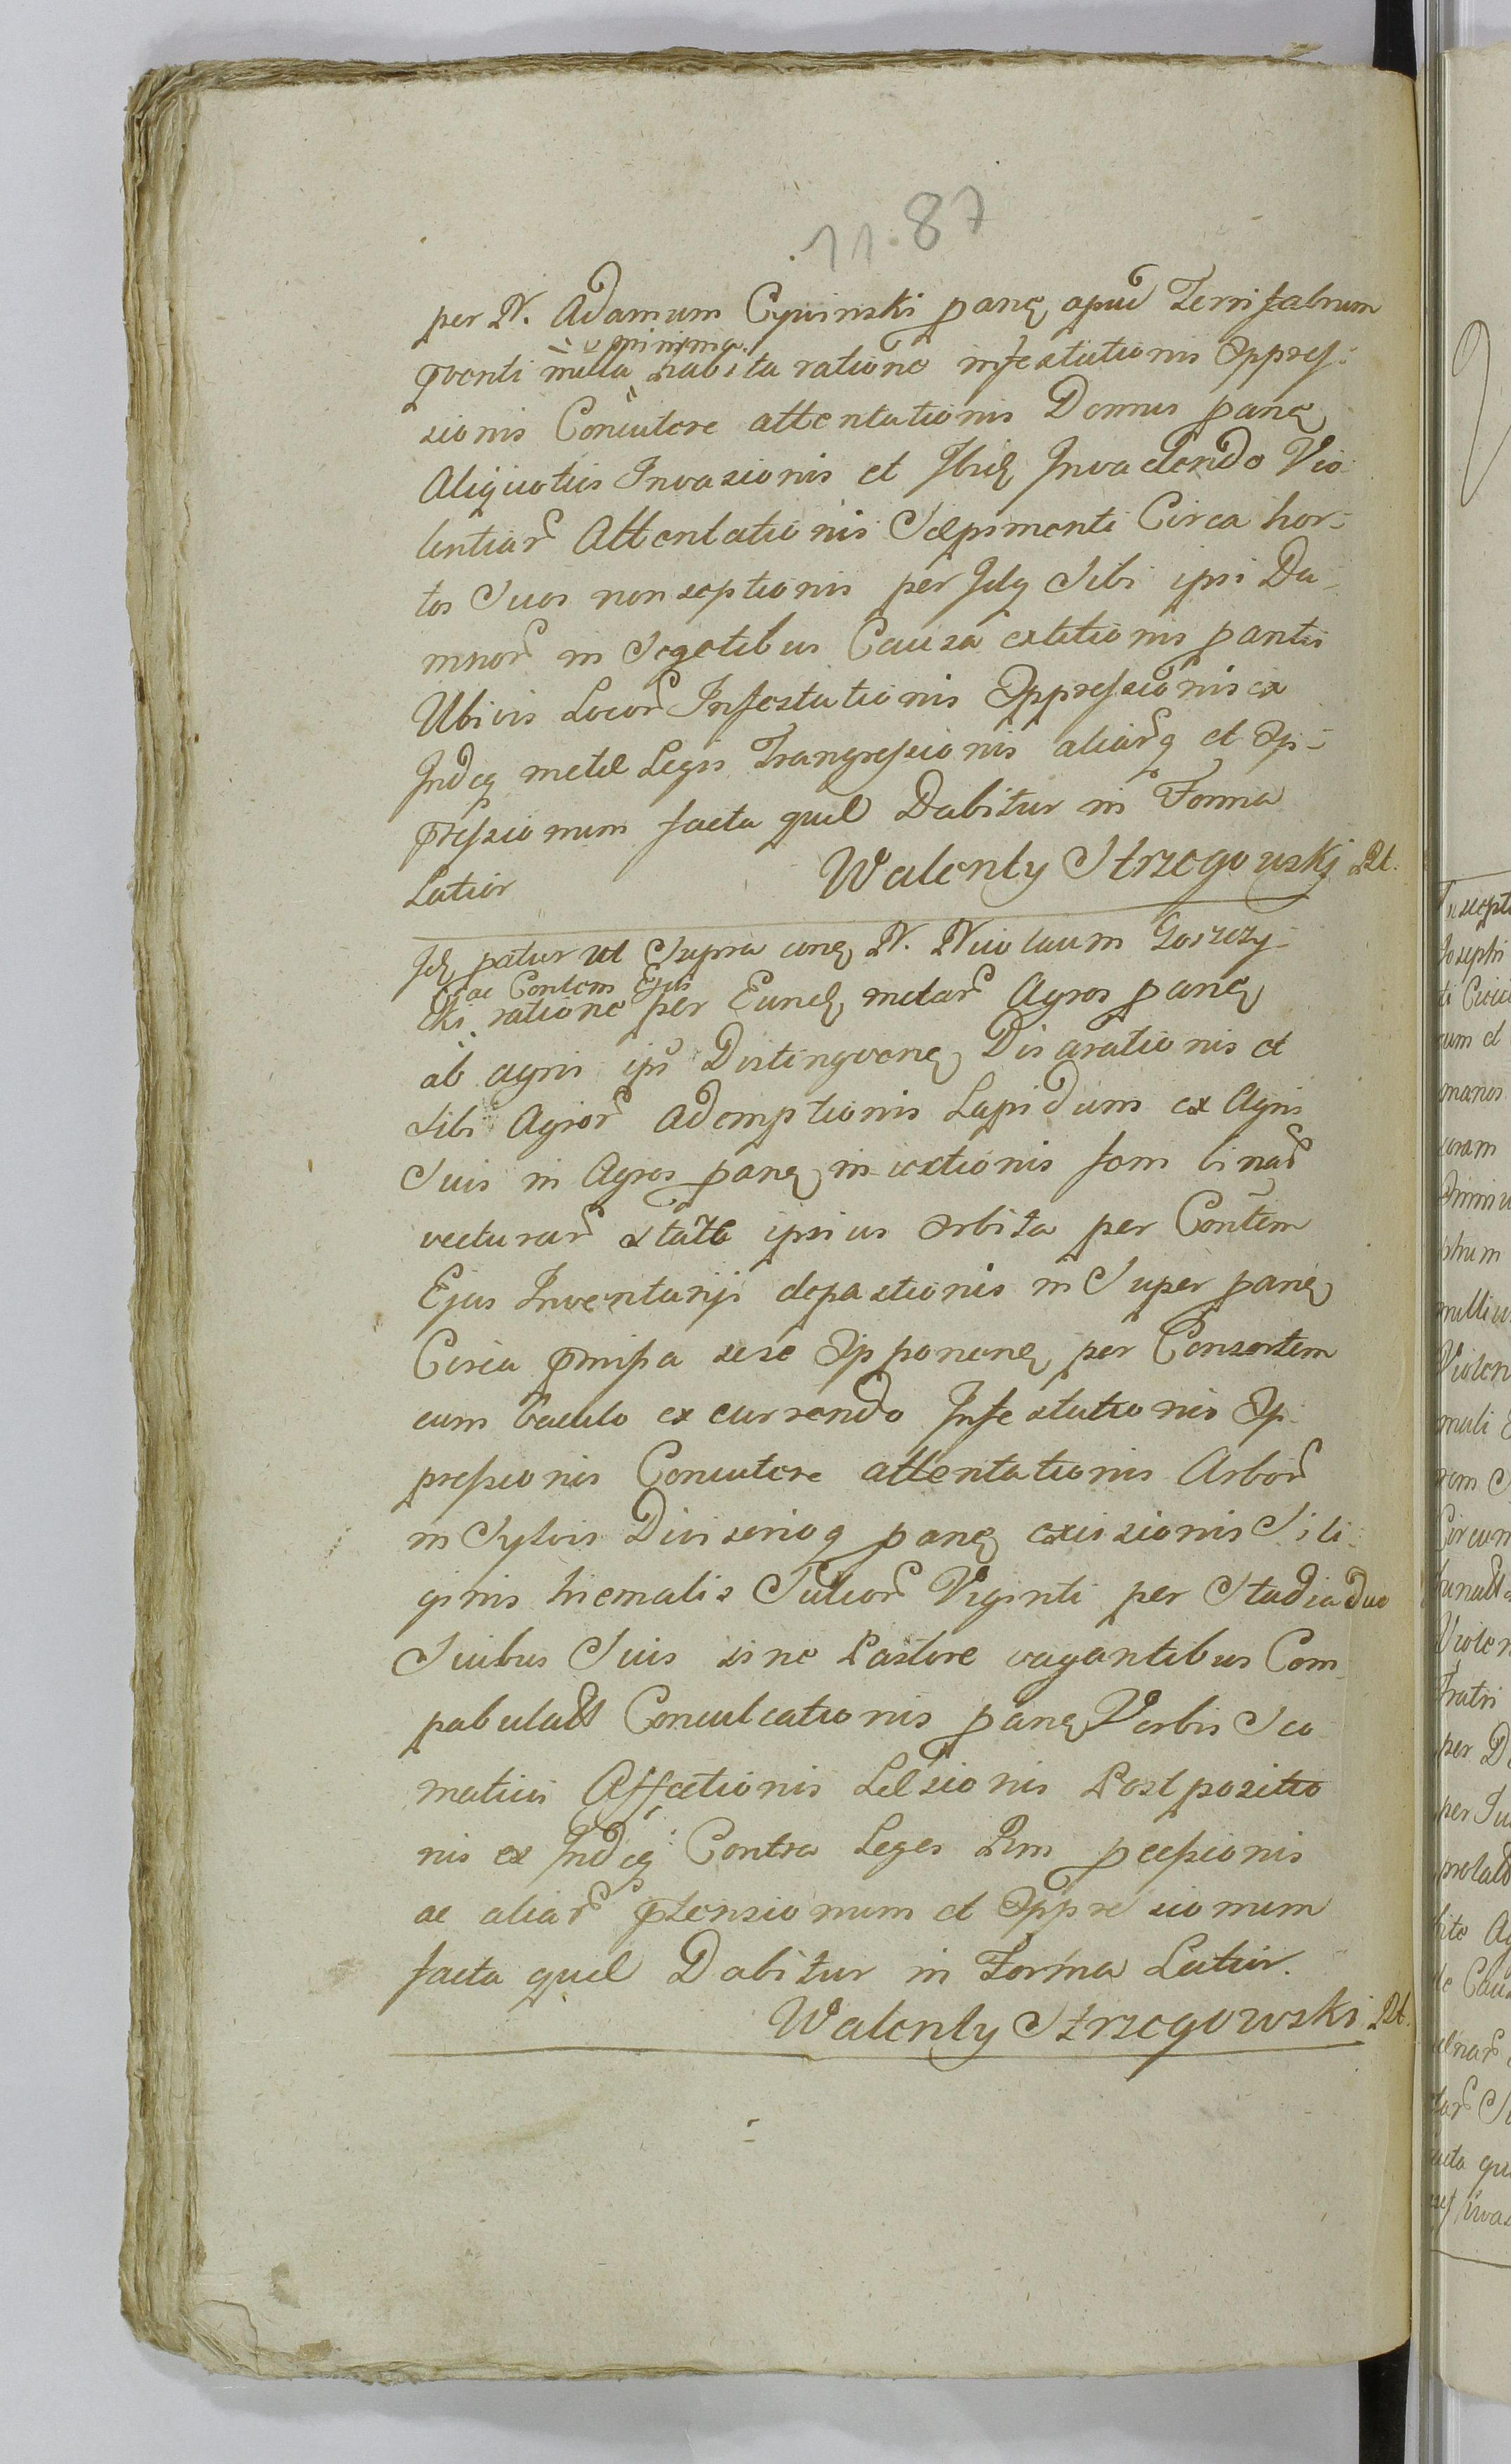 11.87
per N. Adamum Cywinski pane apud Terrifabrum
minima
pventi nulla habita ratione infestationis Oppres:
sionis Concutere attentationis Domus pane
Aliquoties Invasionis et Ibid Invadendo Vio:
lentiar Attentationis Sepimenti Circa hor:
tos Suos non septionis per Idq Sibi ipsi Da:
mnor in Segetibus Causa extitionis pantis
Ubivis Locor Infestationis Oppressionis ex
Indeq metæ Legis Trangressionis aliarq et Op:
pressionum facta quæ Dabitur in Forma
Latior
Walenty Strzegowski Pt.
Id patur ut Supra cone N. Nicolaum Goszczy:
ac Contem Ejus
cki ratione per Eund metar Agros pane
ab agris ips Distingvene Disarationis et
Sibi Agror ademptionis Lapidum ex Agris
Suis in Agros pane injectionis fom binar
vecturar ipsius orbita per Contem
Ejus Inventarij depastionis in Super pane
Circa pmissa sese Opponene per Consortem
cum baculo excurrendo Infestationis Op:
pressionis Concutere attentationis Arbor
in Sylvis Divisorioq pane excisionis Sili:
ginis hiemalis Sulcor Viginti per Stadia duo
Suibus Suis sine Pastore vagantibus Com
pabulatt Conculcationis pane Verbis Sco
maticis Affectionis Lesionis Postpositio
nis ex Indeq Contra Leges Rni pcessionis
ac aliar ptensionum et Oppressionum
facta quæ Dabitur in Forma Latior.
Walenty Strzegowski Pt.